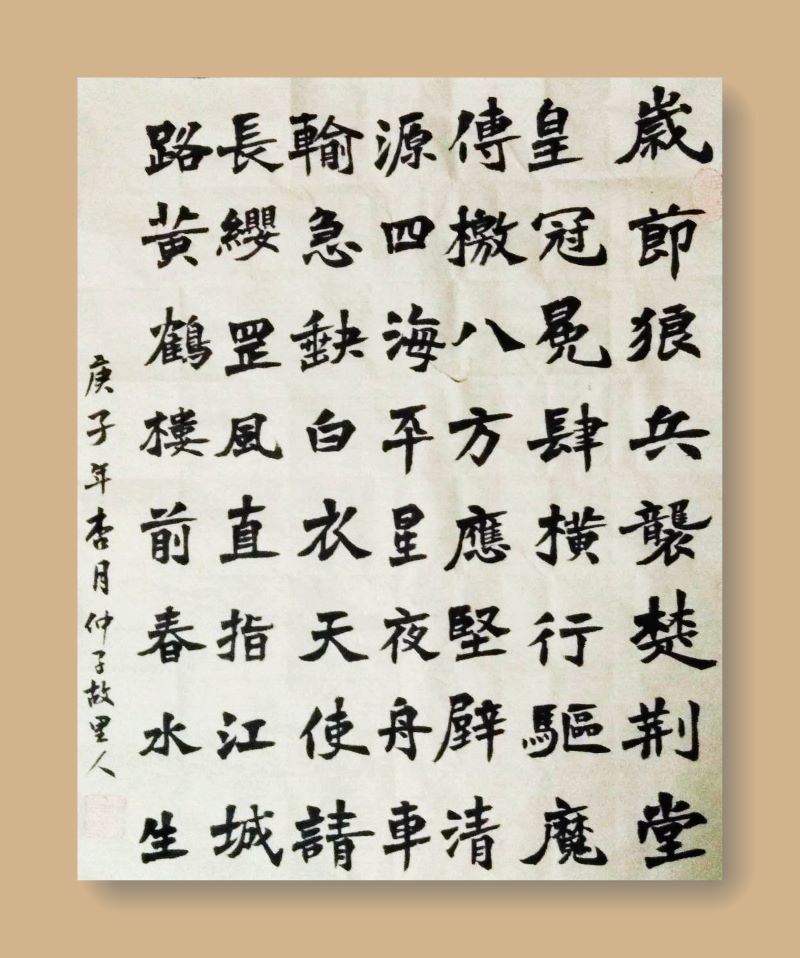 歲節狼兵襲楚荆堂
皇冠冕肆橫行驅魔
傳檄八方應堅壁清
源四海平星夜舟車
輸急缺白衣天使請
長纓罡風直指江城
路黃鶴樓前春水生
庚子年杏月仲子故里人